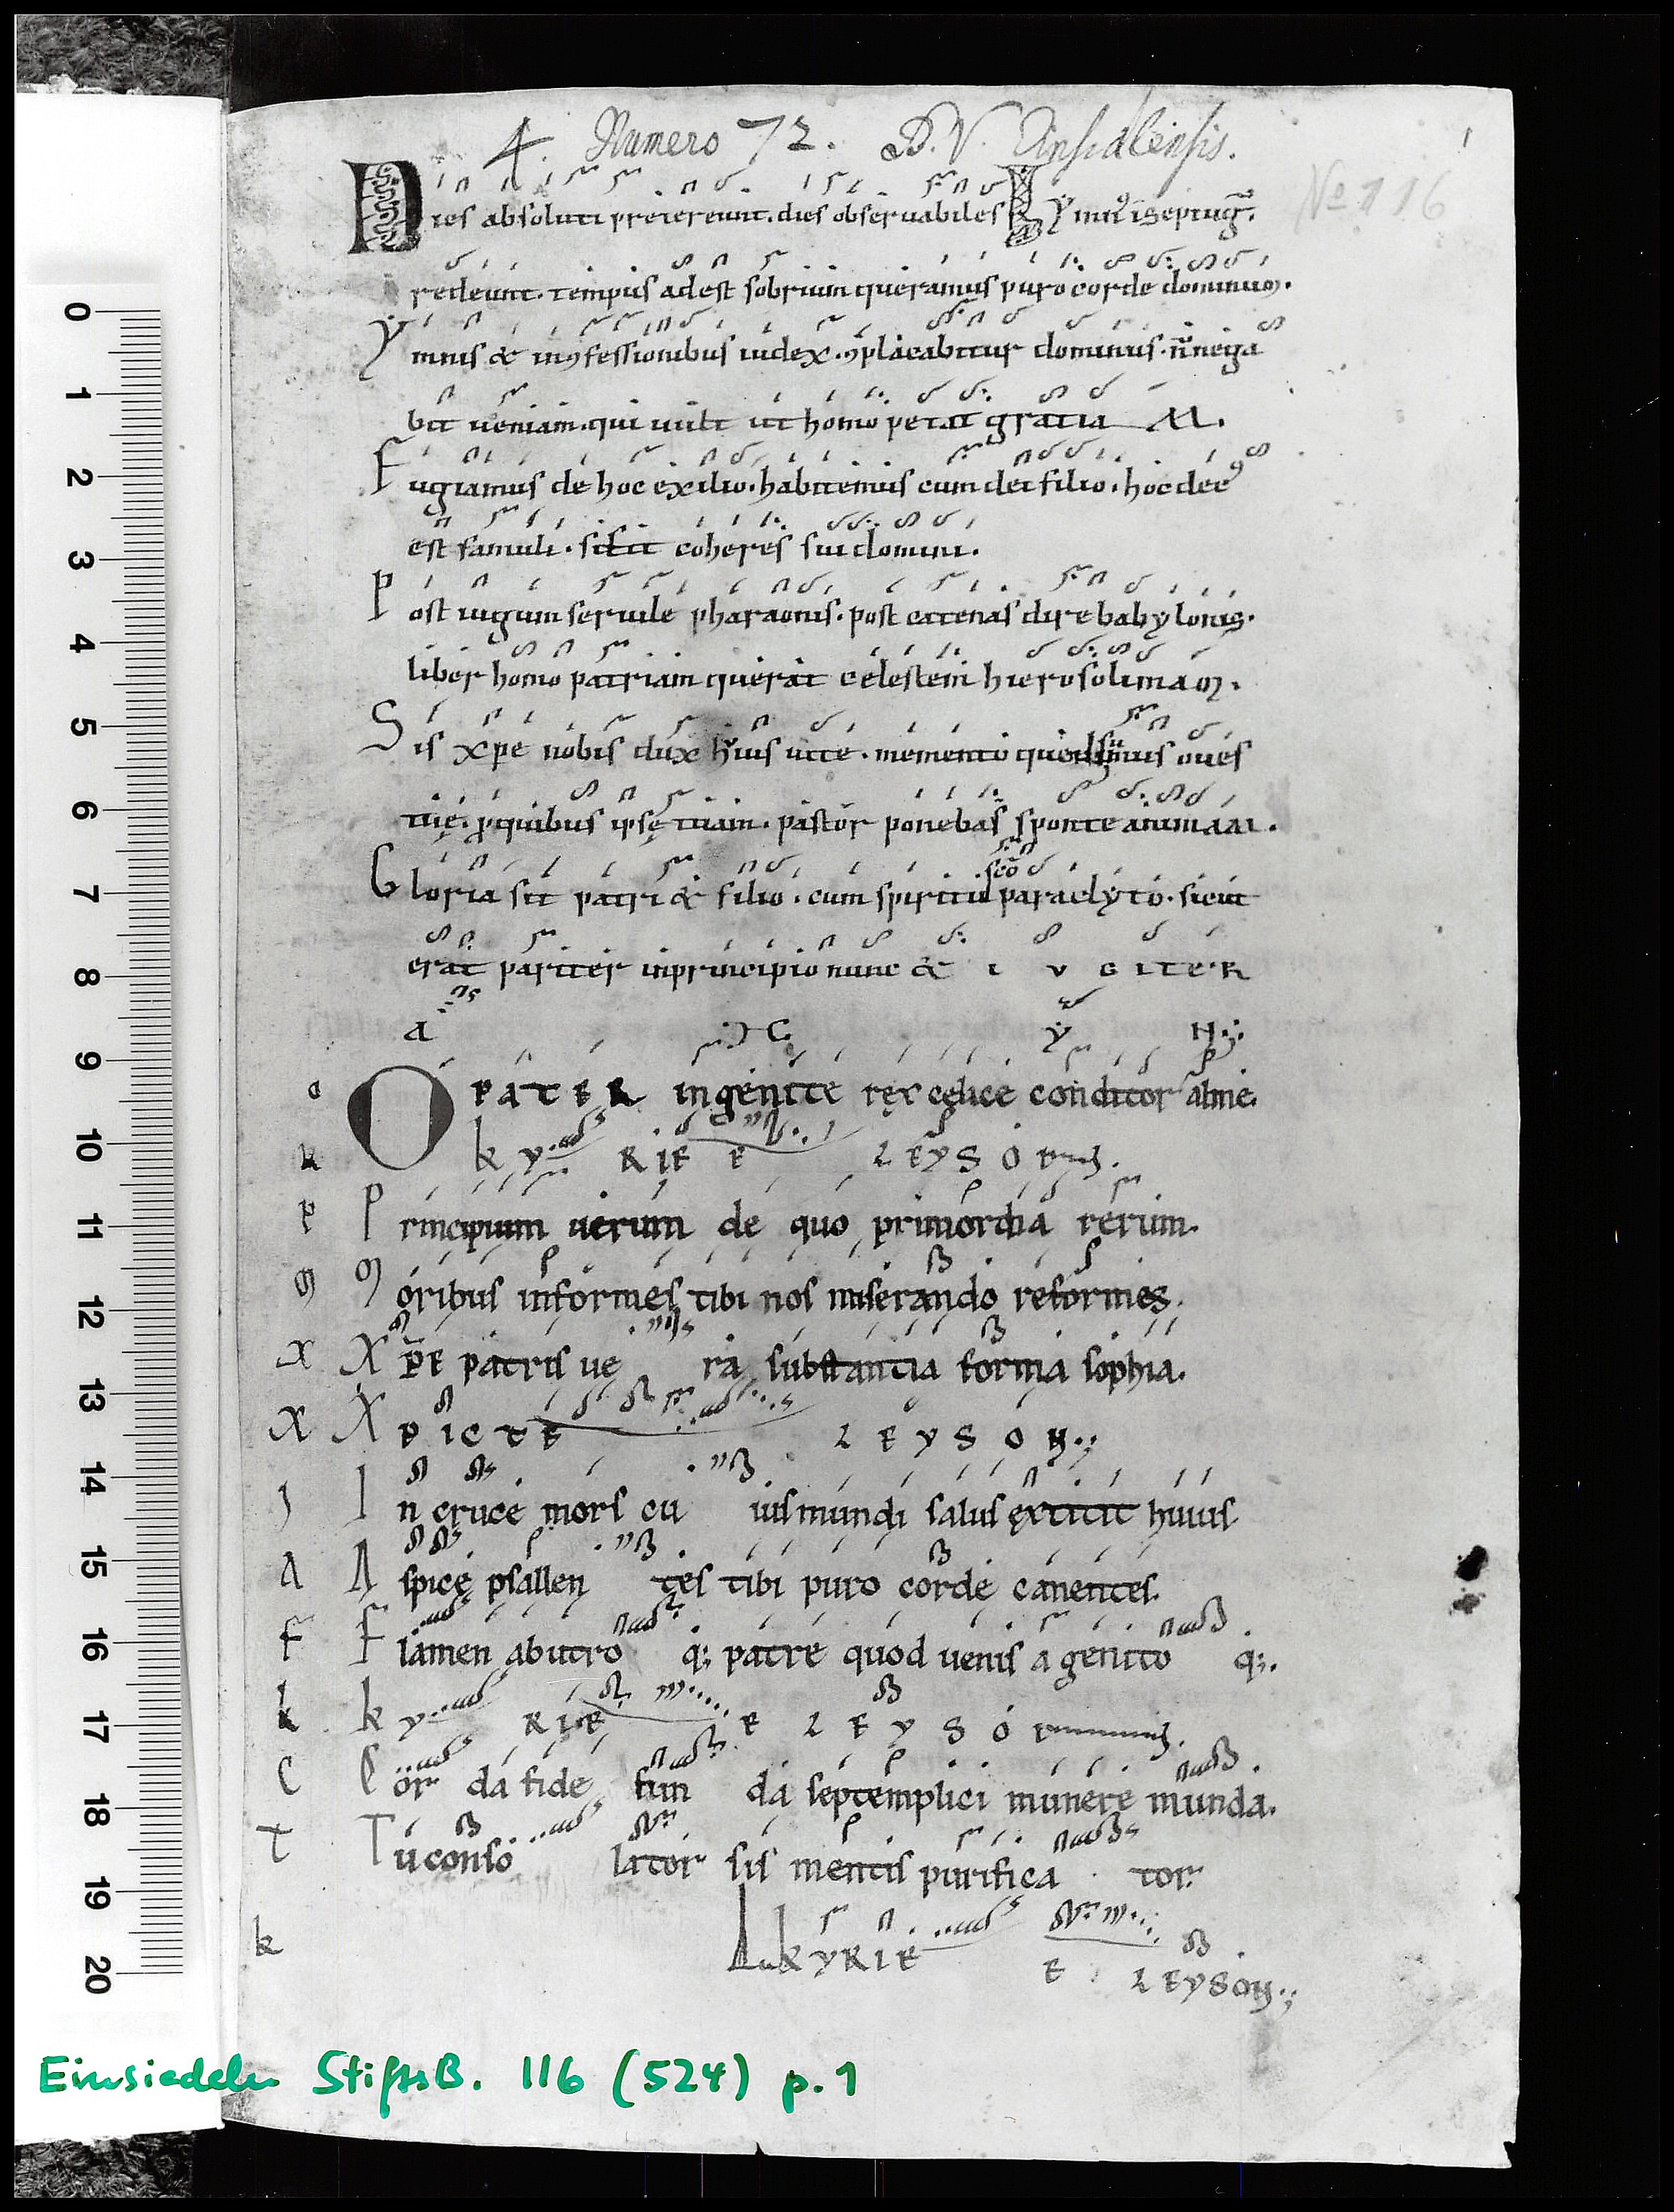 4. Numero 72. D. V. Einsidlensis.
1
No 116
Dies absoluti pretereunt. dies obseruabiles
redeunt. tempus adest sobrium queramus puro corde dominum.
Ymnis & in ꝯfessionibus iudex. ꝯplacabitur dominus. n̄ nega
bit ueniam. qui uult ut homo petat gratiaM.
Fugiamus de hoc exilio. habitemus cum dei filio. hoc decꝰ
est famuli. si sit coheres sui domini.
Post iugum seruile pharaonis. post catenas dire babylonis.
liber homo patriam querat celestem hierosolimam.
Sis xpe nobis dux huius uite. memento quod sumus oues
tuę. ꝓ quibus ipsę tuam. pastor ponebas sponte animam.
Gloria sit patri & filio. cum spiritu sc̄o paraclyto. sicut
erat pariter in principio nunc & IUGITER
a
O O PATER ingenite rex celice conditor alme.
k KYRIE ELEYSON.
P Principium uerum de quo primordia rerum.
M Moribus informes tibi nos miserando reformes.
X Xpe patris ue ra substantia forma sophia.
X XPICTE LEYSON
I In cruce mors cu ius mundi salus extitit huius
A Aspice psallen tes tibi puro corde canentes.
F Flamen ab utro q; patre quod uenis a genito q;.
k KYRIE ELEYSON.
C Cor da fide fun da septemplici munere munda.
T Tu conso lator sis mentis purifica tor.
k KYRIE ELEYSON
0
1
2
3
4
5
6
7
8
9
10
11
12
13
14
15
16
17
18
19
20
Einsiedeln StiftsB. 116 (524) p. 1